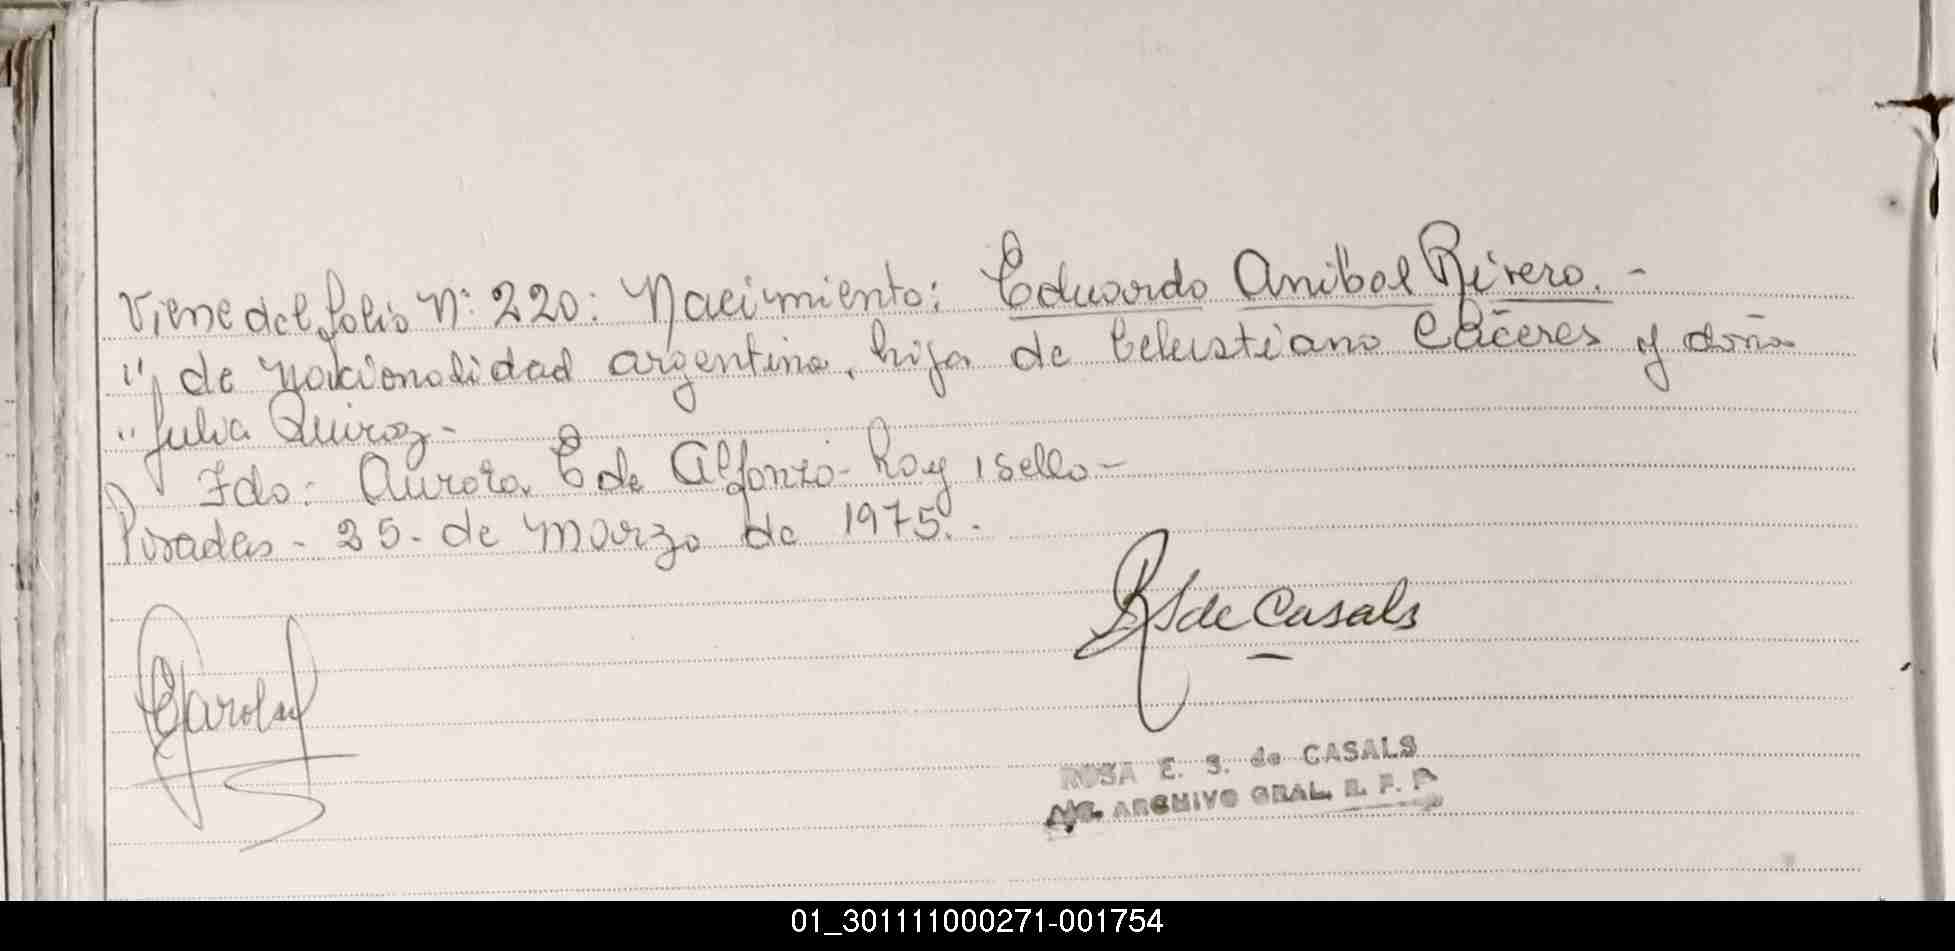 Viene del folio Nº 220: Nacimiento: Eduardo Anibal Rivero. -
" de nacionalidad argentina, hija de Celestiano Cáceres y doña
" Julia Quiroz -
Fdo: Aurora C de Alfonzo - hay 1 sello -
Posadas - 25 - de Marzo de 1975. -
RS de Casals
ROSA E. S. de CASALS
ARCHIVO GRAL. R. P. P
01_301111000271-001754